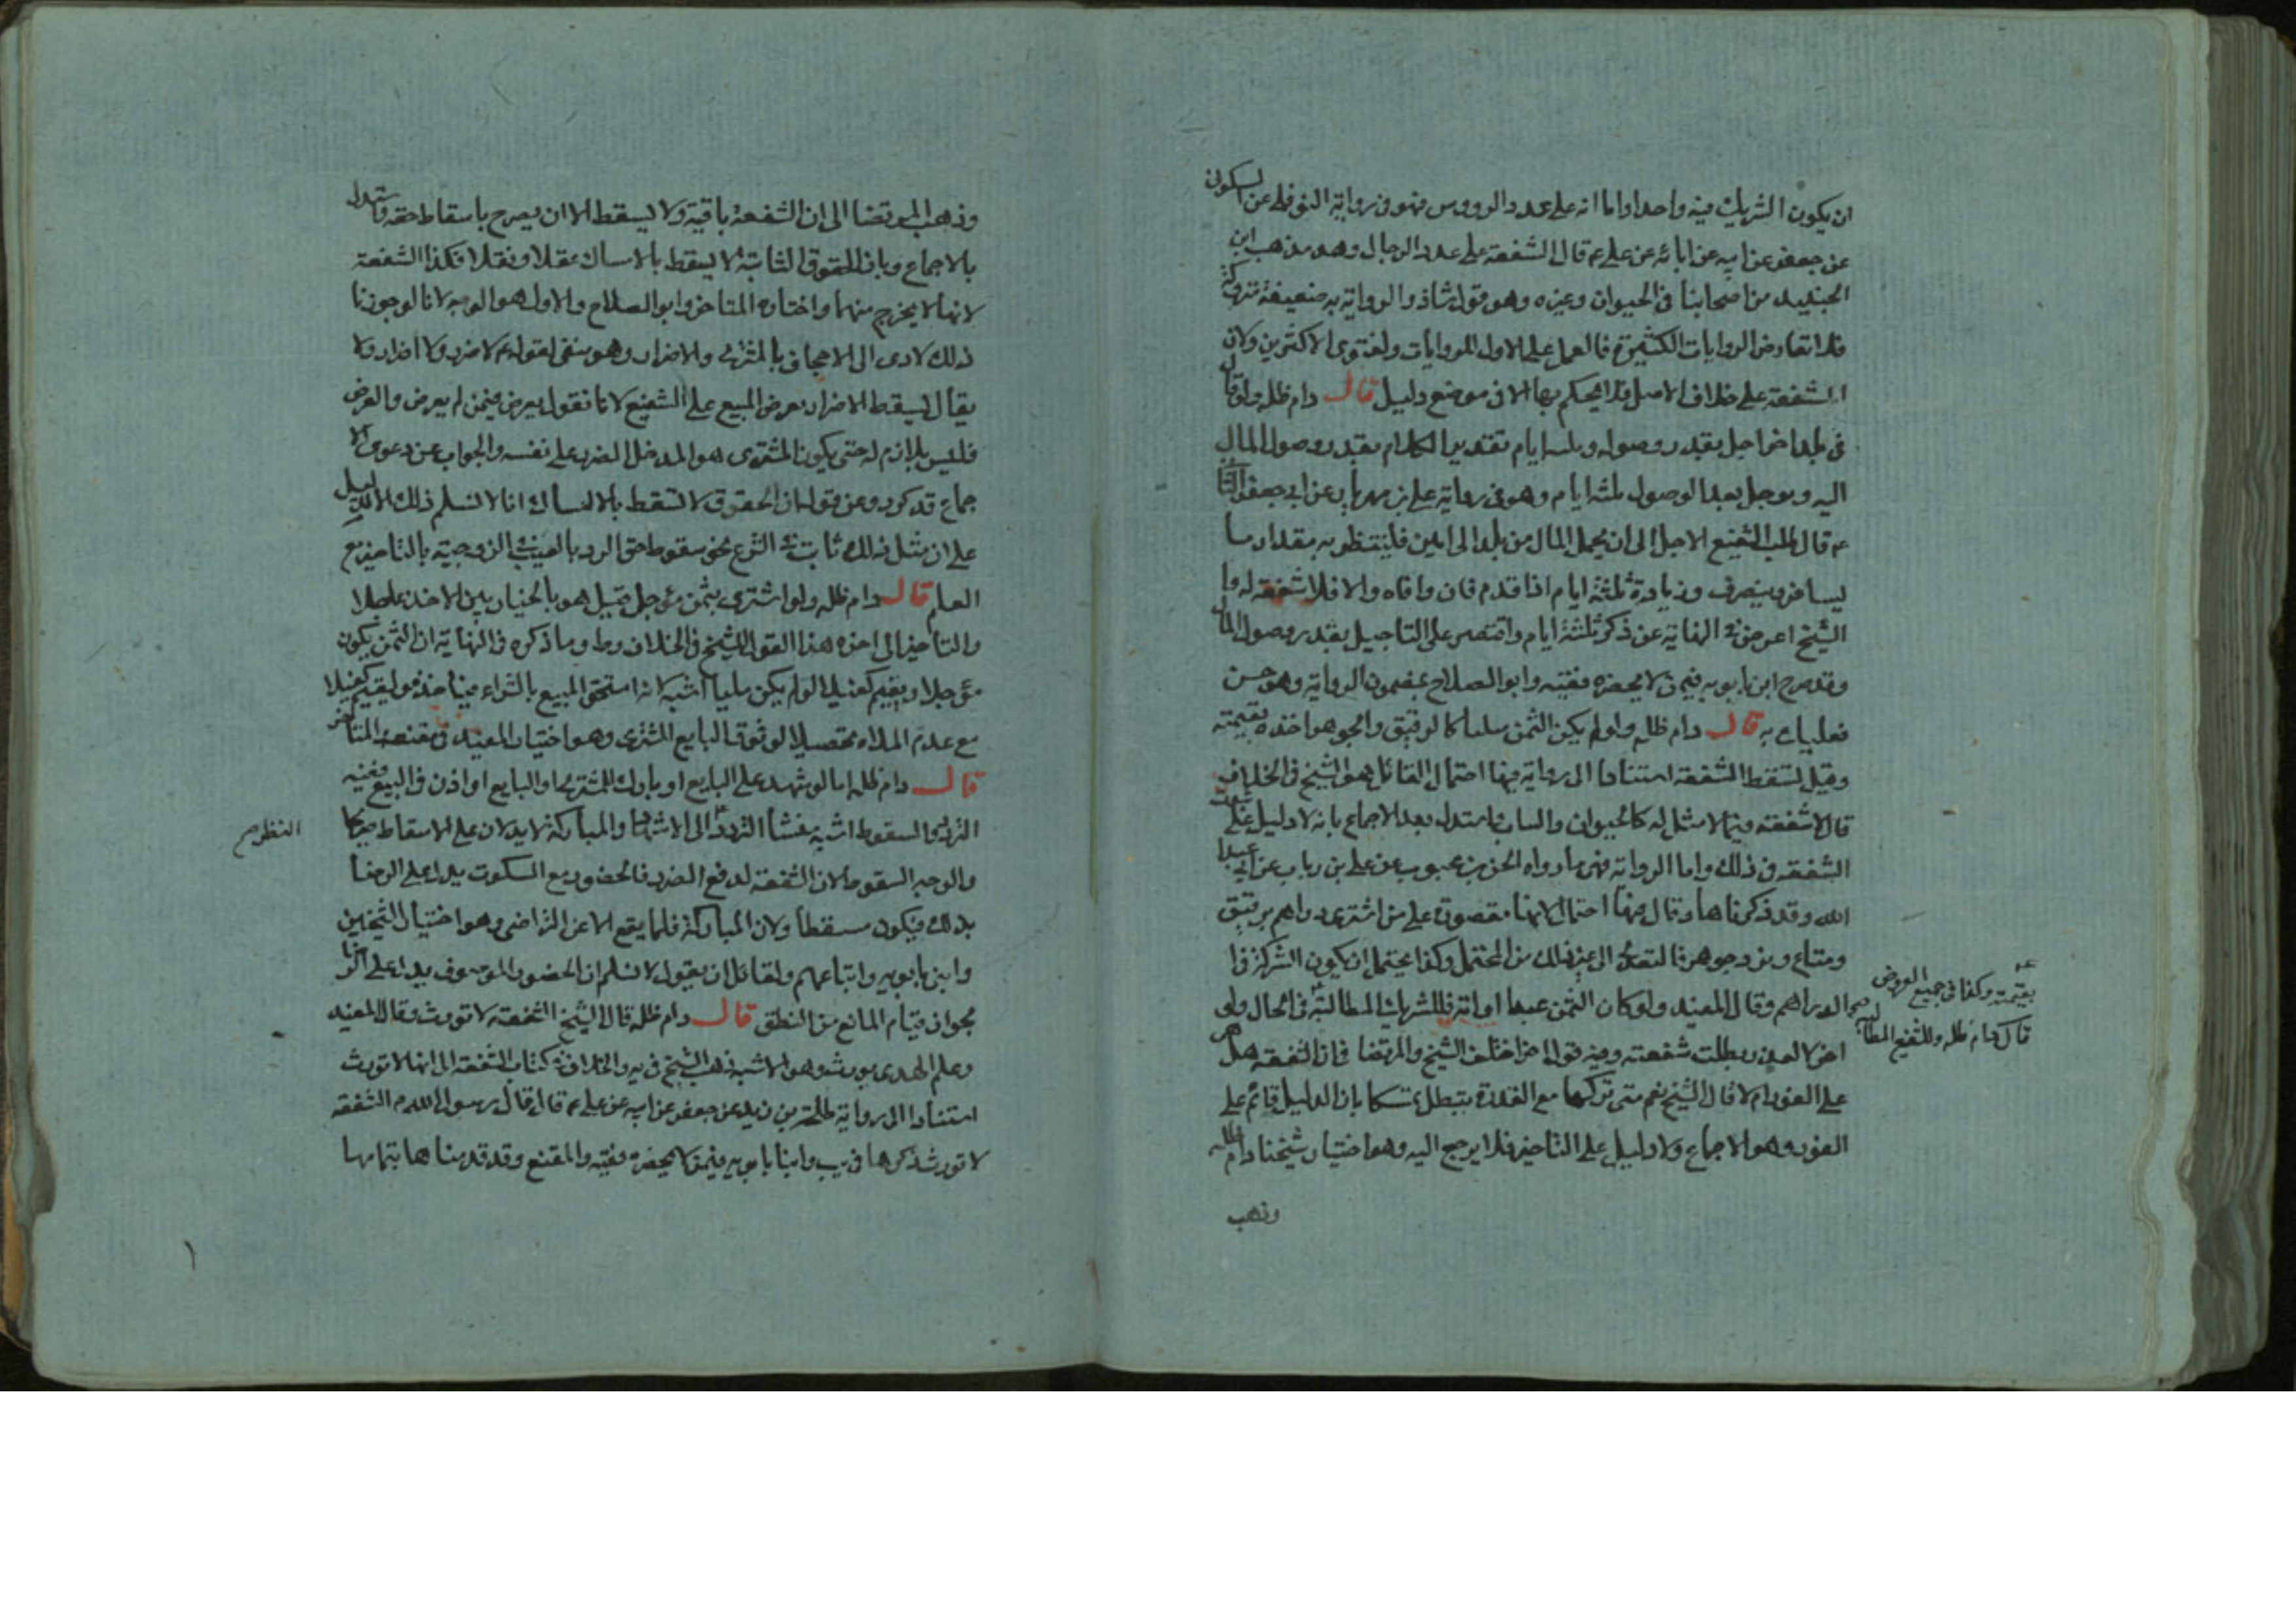 ان يكون الشريك فيه واحدا واما انه على عدد الرووس فهو فى رواية النوفلى عن السكونى
عن جعفر عن ابيه عن ابائه عن على ع قال الشفعة على عدد الرجال وهو مذهب ابن
الجنيد من اصحابنا فى الحيوان وغيره وهو قول شاذ والرواية به ضعيفة متروكة
فلا تعارض الروايات الكثيرة فالعمل على الاول للروايات ولفتوى الاكثرين ولان
الشفعة على خلاف الاصل فلا يحكم بها الا فى موضع دليل قال دام ظله ولو قال
فى بلد اخر اجل بقدر وصوله وثلثه ايام تقدير الكلام بقدر وصول المال
اليه ويوجل بعد الوصول ثلثه ايام وهو فى رواية على بن مهزيار عن ابى جعفر الثانى
ع قال طلب الشفيع الاجل الى ان يحمل المال من بلد الى اخر فلينتظر به مقدار ما
يسافر وينصرف وزيادة ثلثة ايام اذا قدم فان وافاه والا فلا شفعة له واما
الشيخ اعرض فى النهاية عن ذكر ثلثة ايام واقتصر على التاجيل بقدر وصول المال
وقد صرح ابن بابويه فيمن لا يحضره فقيه وابو الصلاح بمضمون الرواية وهو حسن
فعليك به قال دام ظله ولو لم يكن الثمن مثليا كالرقيق والجوهر اخذه بقيمته
وقيل تسقط الشفعة استنادا الى رواية فيها احتمال القائل هو الشيخ فى الخلاف
قال لا شفعة فيما لا مثل له كالحيوان والثياب فاستدل بعد الاجماع بانه لا دليل على ثبوت
الشفعة فى ذلك واما الرواية فهى ما رواه الحسن بن محبوب عن على بن رياب عن ابى عبد
الله وقد ذكرناها وقال فيها احتمال لانها مقصورة على من اشترى دراهم برقيق
ومتاع وبز وجوهر فالتعدى الى غير ذلك من المحتمل وكذا يحتمل ان يكون الشركة فى
الدراهم وقال المفيد ولو كان الثمن عبدا او امة فللشريك المطالبة فى الحال ولو
اخر لا لعذر بطلت شفعته وفيه قول اخر اختلف الشيخ والمرتضا فى ان الشفعة هل هى
على الفور ام لا قال الشيخ نعم متى تركها مع القدرة بتبطل تمسكا بان الدليل قائم على
الفور وهو الاجماع ولا دليل على التاخير فلا يرجع اليه وهو اختيار شيخنا دام ظله
وذهب
بقيمته وكذا فى جميع العروض صح
قال دام ظله وللشفيع المطالبة
وذهب المرتضا الى ان الشفعة باقية ولا يسقط الا ان يصرح باسقاط حقه واستدل
بالاجماع وبان الحقوق الثابتة لا يسقط بالامساك عقلا ونقلا فكذا الشفعة
لانها لا يخرج منها واختاره المتاخر وابو الصلاح والاول هو الوجه لانا لو جوزنا
ذلك لادى الى الاجحاف بالمشترى والاضرار وهو منفى لقوله ع لا ضرر ولا اضرار ولا
يقال يسقط الاضرار بعرض المبيع على الشفيع لانا نقول يعرض فيمن لم يعرض والعرض
فليس بلازم له حتى يكون المشترى هو المدخل الضرر على نفسه والجواب عن دعوى الا
جماع قد كرر وعن قوله ان الحقوق لا تسقط بالامساك انا لا نسلم ذلك الا لدليل
على ان مثل ذلك ثابت فى الشرع نحو سقوط حق الرد بالعيب فى الزوجية بالتاخير مع
العلم قال دام ظله ولو اشترى بثمن مؤجل قيل هو بالخيار بين الاخذ عاجلا
والتاخير الى اخره هذا القول للشيخ فى الخلاف وط وما ذكره فى النهاية ان الثمن يكون
مؤجلا ويقيم كفيلا لو لم يكن مليا اشبه لانه استحق المبيع بالشراء فياخذه ويقيم كفيلا
مع عدم الملاه تحصيلا لوثوق البايع المشترى وهو اختيار المفيد فى مقنعه والمتاخر
قال دام ظله اما لو شهد على البايع او بارك للمشترى او البايع او اذن فى البيع ففيه
التردد والسقوط اشبه منشأ التردد الى الاشهاد والمباركة لا يدلان على الاسقاط صريحا
والوجه السقوط لان الشفعة لدفع الضرر فالحضور مع السكوت يدل على الرضا
بذلك فيكون مسقطا ولان المباركة فلما يقع الا عن التراضى وهو اختيار الشيخين
وابن بابويه واتباعهم ولقائل ان يقول لا نسلم ان الحضور الموصوف يدل على الرضا
بجواز قيام المانع من النطق قال دام ظله قال الشيخ الشفعة لا تورث وقال المفيد
وعلم الهدى يورث وهو الاشبه ذهب الشيخ فى يه والخلاف فى كتاب الشفعة الى انها لا تورث
استنادا الى رواية طلحة بن زيد عن جعفر عن ابيه عن على ع قال قال رسول الله ص الشفعة
لا تورث ذكرها فى يب وابنا بابويه فيمن لا يحضره فقيه والمقنع وقد قدمناها بتمامها
النظر صح